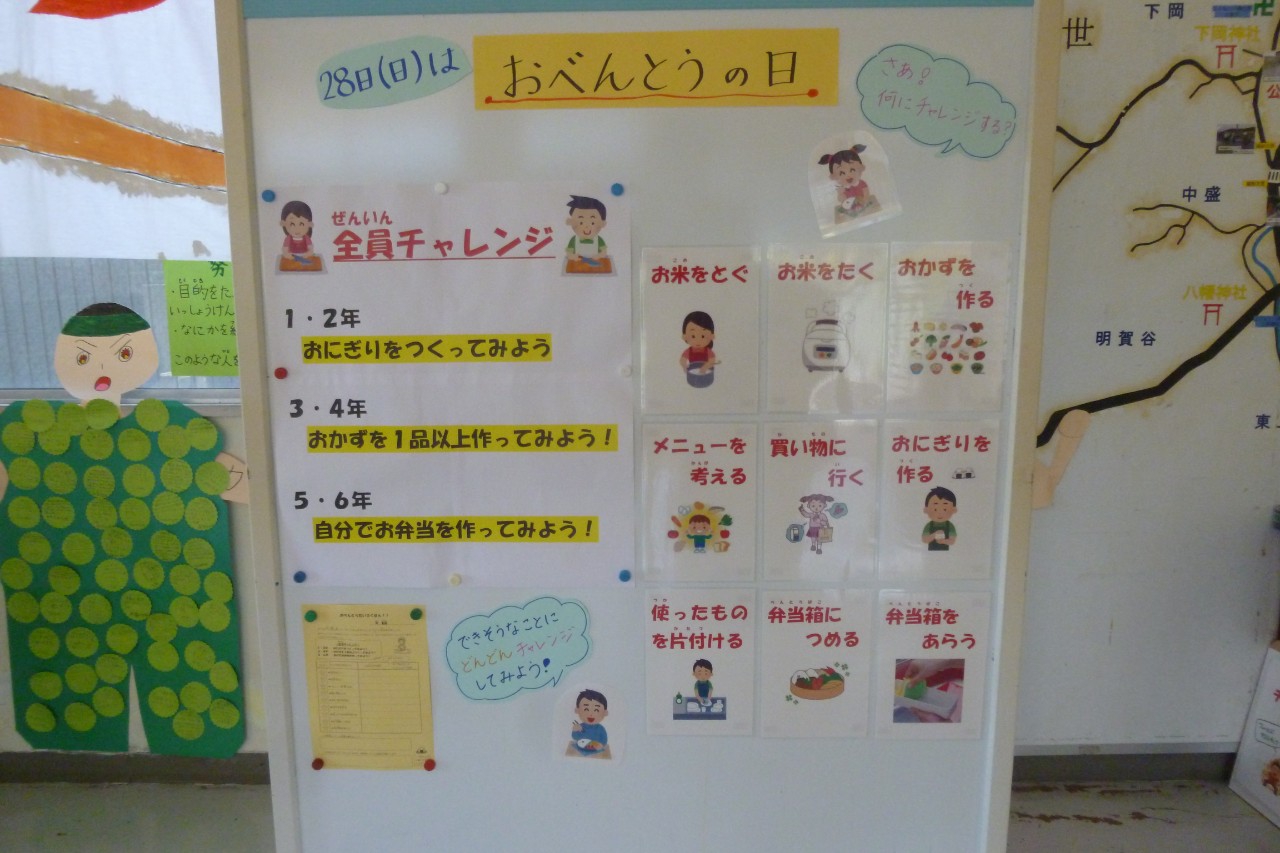 28日(日)は
おべんとうの日
さあ!
何にチャレンジする?
ぜんいん
全員チャレンジ
1・2年
おにぎりをつくってみよう
3・4年
おかずを1品以上作ってみよう!
5・6年
自分でお弁当を作ってみよう!
お米をとぐ
お米をたく
おかずを
作る
メニューを
考える
買い物に
行く
おにぎりを
作る
使ったもの
を片付ける
弁当箱に
つめる
弁当箱を
あらう
できそうなことに
どんどんチャレンジ
してみよう!
・目的をた
いっしょうけん
・なにかを
このような人を
世
下岡
下岡神社
中盛
八幡神社
明賀谷
東